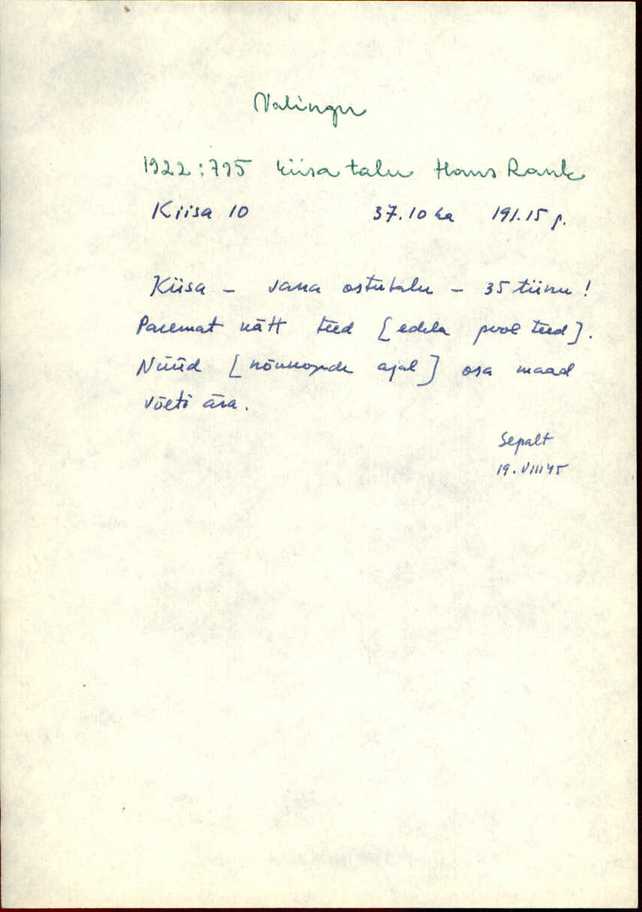 Valingu
1922:795 Kiisa talu Hans Rank
Kiisa 10 37.10 ha 191.15 r.
Kiisa - vana ostutalu - 35 tiinu!
Paremat kätt teed [edela pool teed].
Nüüd [nõukogude ajal] osa maad
võeti ära.
Sepalt
19.VIII 45